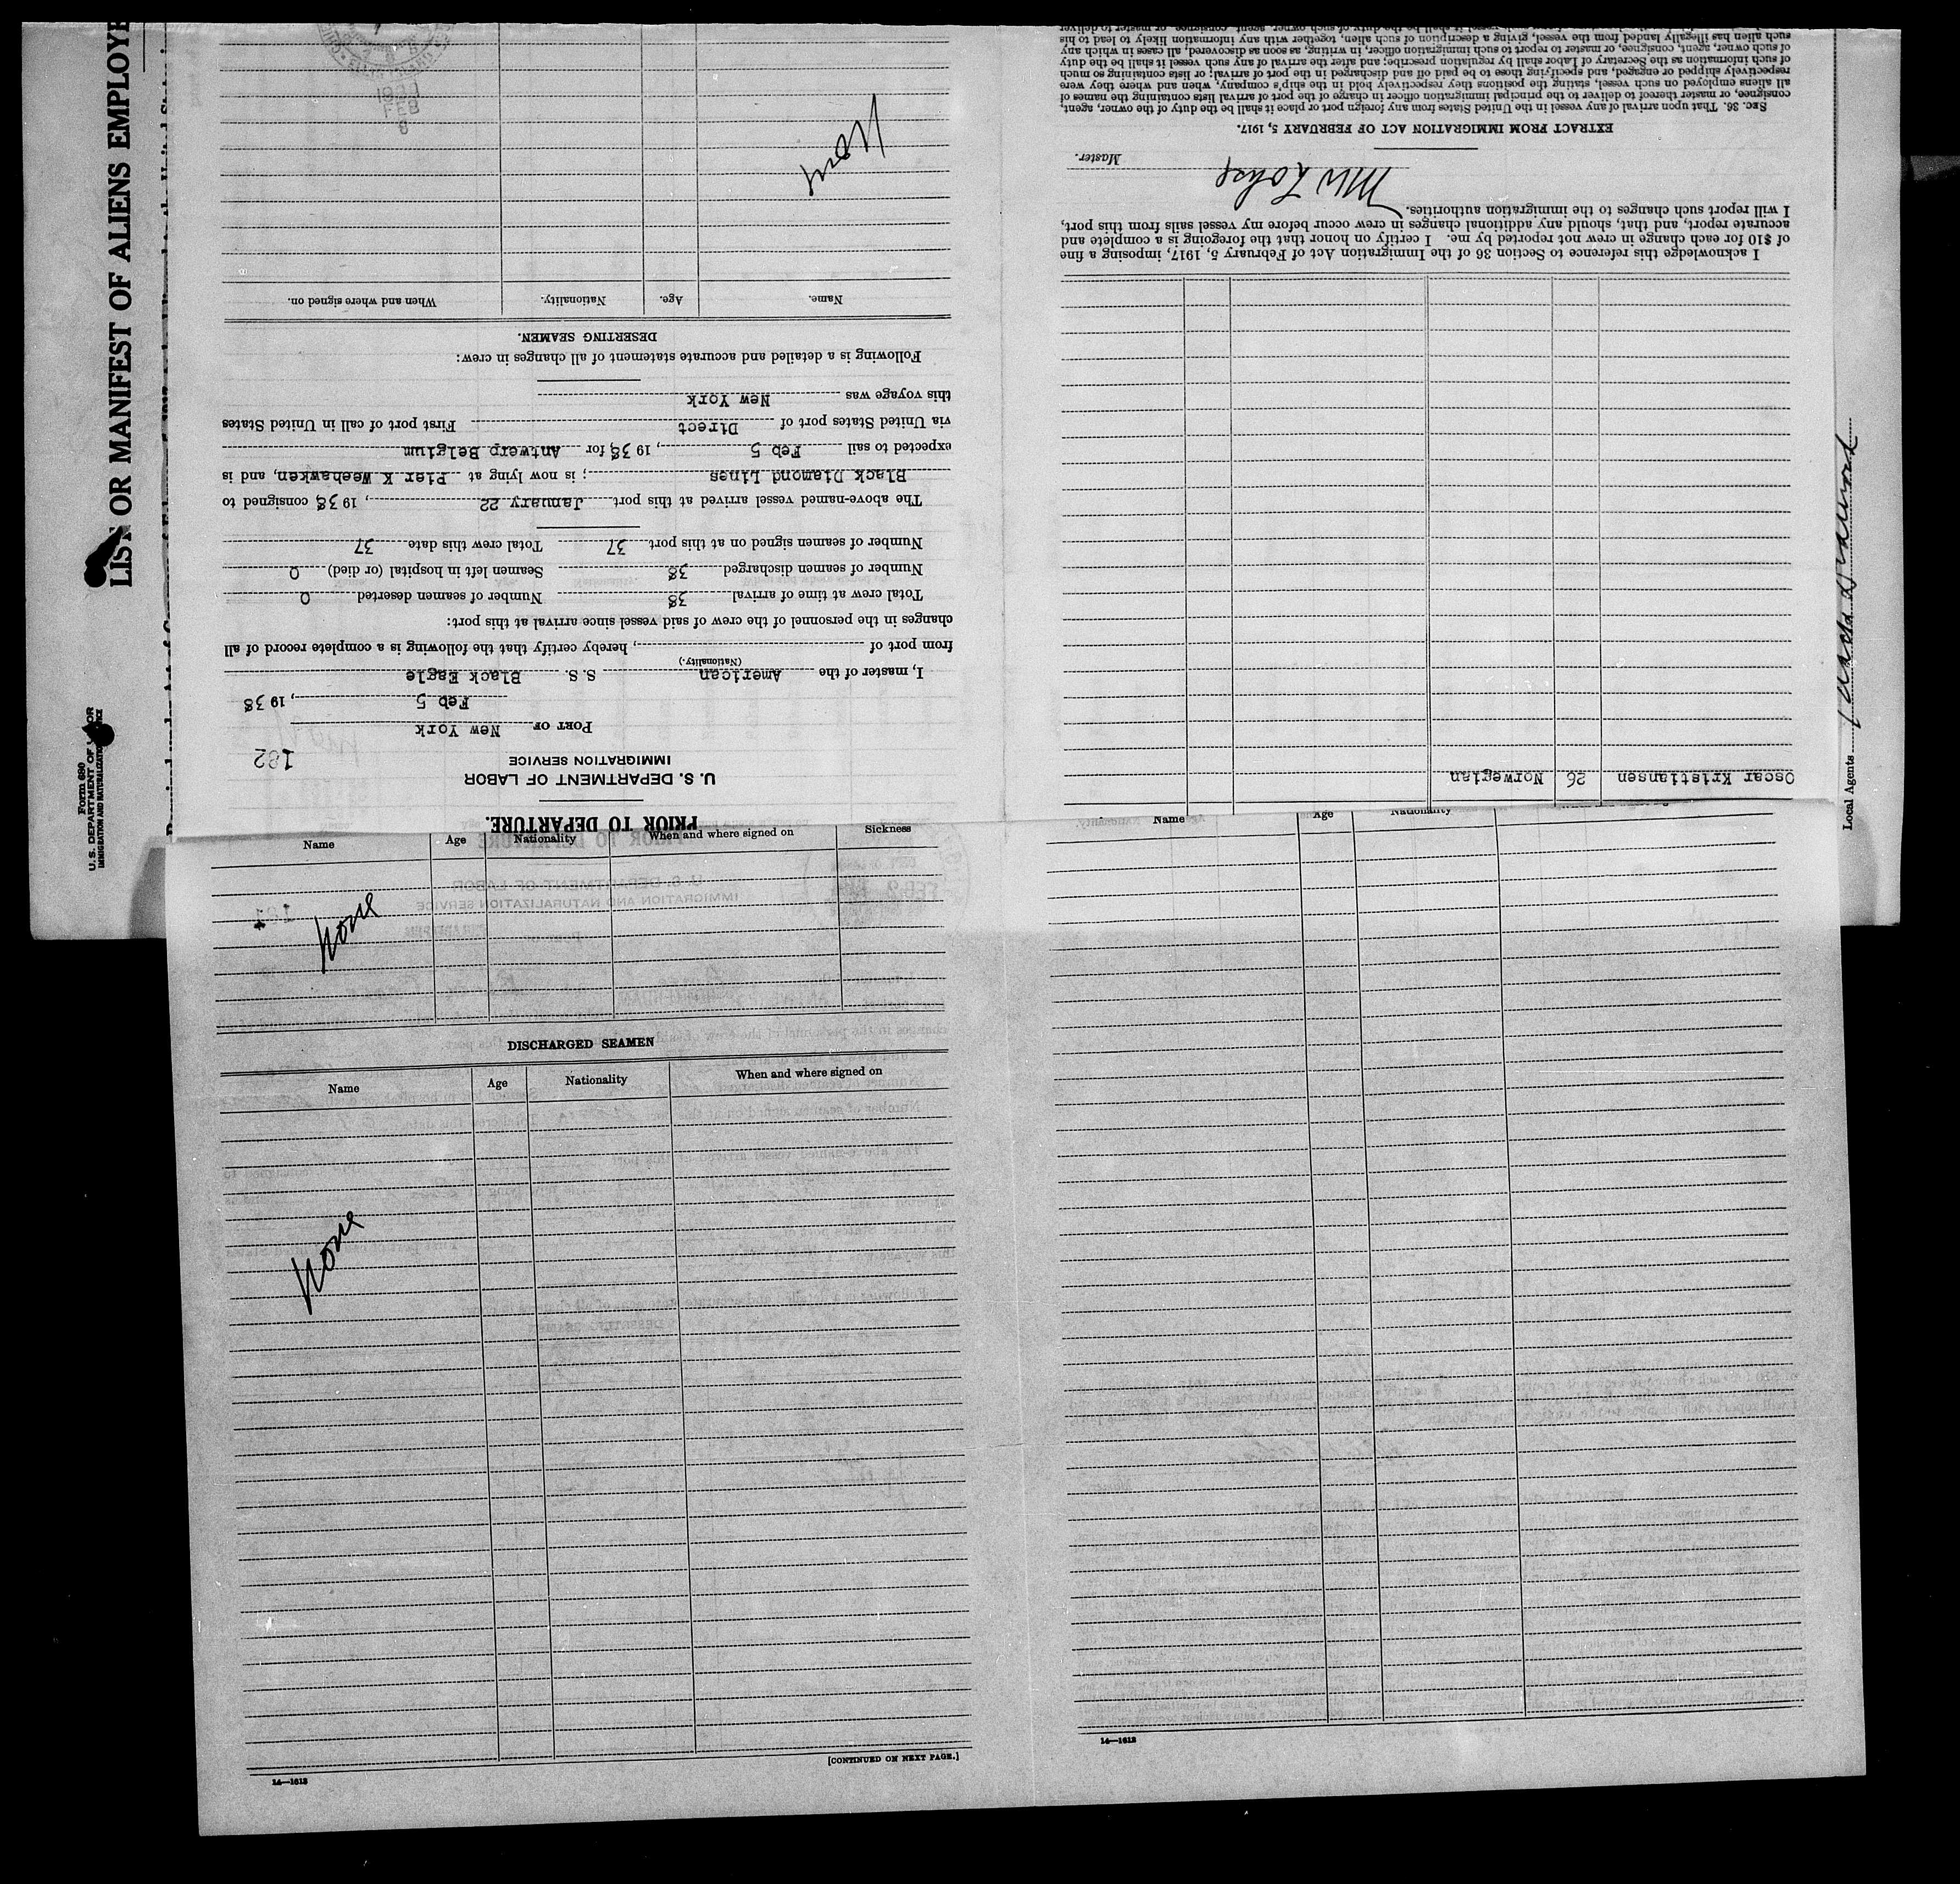 LIST OR MANIFEST OF ALIENS EMPLOYE
Form 680
U.S. DEPARTMENT OF LABOR
IMMIGRATION AND NATURALIZATION SERVICE
Local Agents
PRIOR TO DEPARTURE.
U. S. DEPARTMENT OF LABOR
IMMIGRATION SERVICE
182
PORT OF New York
Feb 5, 1938
I, master of the American S. S. Black Eagle
(Nationality.)
from port of , hereby certify that the following is a complete record of all
changes in the personnel of the crew of said vessel since arrival at this port:
Total crew at time of arrival 38 Number of seamen deserted 0
Number of seamen discharged 38 Seamen left in hospital (or died) 0
Number of seamen signed on at this port 37 Total crew this date 37
The above-named vessel arrived at this port January 22, 1938 consigned to
Black Diamond Lines ; is now lying at Pier K Weehawken, and is
expected to sail Feb 5, 1938 for Antwerp Belgium
via United States port of Direct First port of call in United States
this voyage was New York
Following is a detailed and accurate statement of all changes in crew:
DESERTING SEAMEN.
Name. Age. Nationality. When and where signed on.
None
FEB 8
Oscar Kristiansen 26 Norwegian
I acknowledge this reference to Section 36 of the Immigration Act of February 5, 1917, imposing a fine
of $10 for each change in crew not reported by me. I certify on honor that the foregoing is a complete and
accurate report, and that, should any additional changes in crew occur before my vessel sails from this port,
I will report such changes to the immigration authorities.
Master.
EXTRACT FROM IMMIGRATION ACT OF FEBRUARY 5, 1917.
SEC. 36. That upon arrival of any vessel in the United States from any foreign port or place it shall be the duty of the owner, agent,
consignee, or master thereof to deliver to the principal immigration officer in charge of the port of arrival lists containing the names of
all aliens employed on such vessel, stating the positions they respectively hold in the ship's company, when and where they were
respectively shipped or engaged, and specifying those to be paid off and discharged in the port of arrival; or lists containing so much
of such information as the Secretary of Labor shall by regulation prescribe; and after the arrival of any such vessel it shall be the duty
of such owner, agent, consignee, or master to report to such immigration officer, in writing, as soon as discovered, all cases in which any
such alien has illegally landed from the vessel, giving a description of such alien, together with any information likely to lead to his
Name Age Nationality When and where signed on Sickness
None
DISCHARGED SEAMEN
Name Age Nationality When and where signed on
None
[CONTINUED ON NEXT PAGE.]
14—1613
Name Age Nationality
14—1613